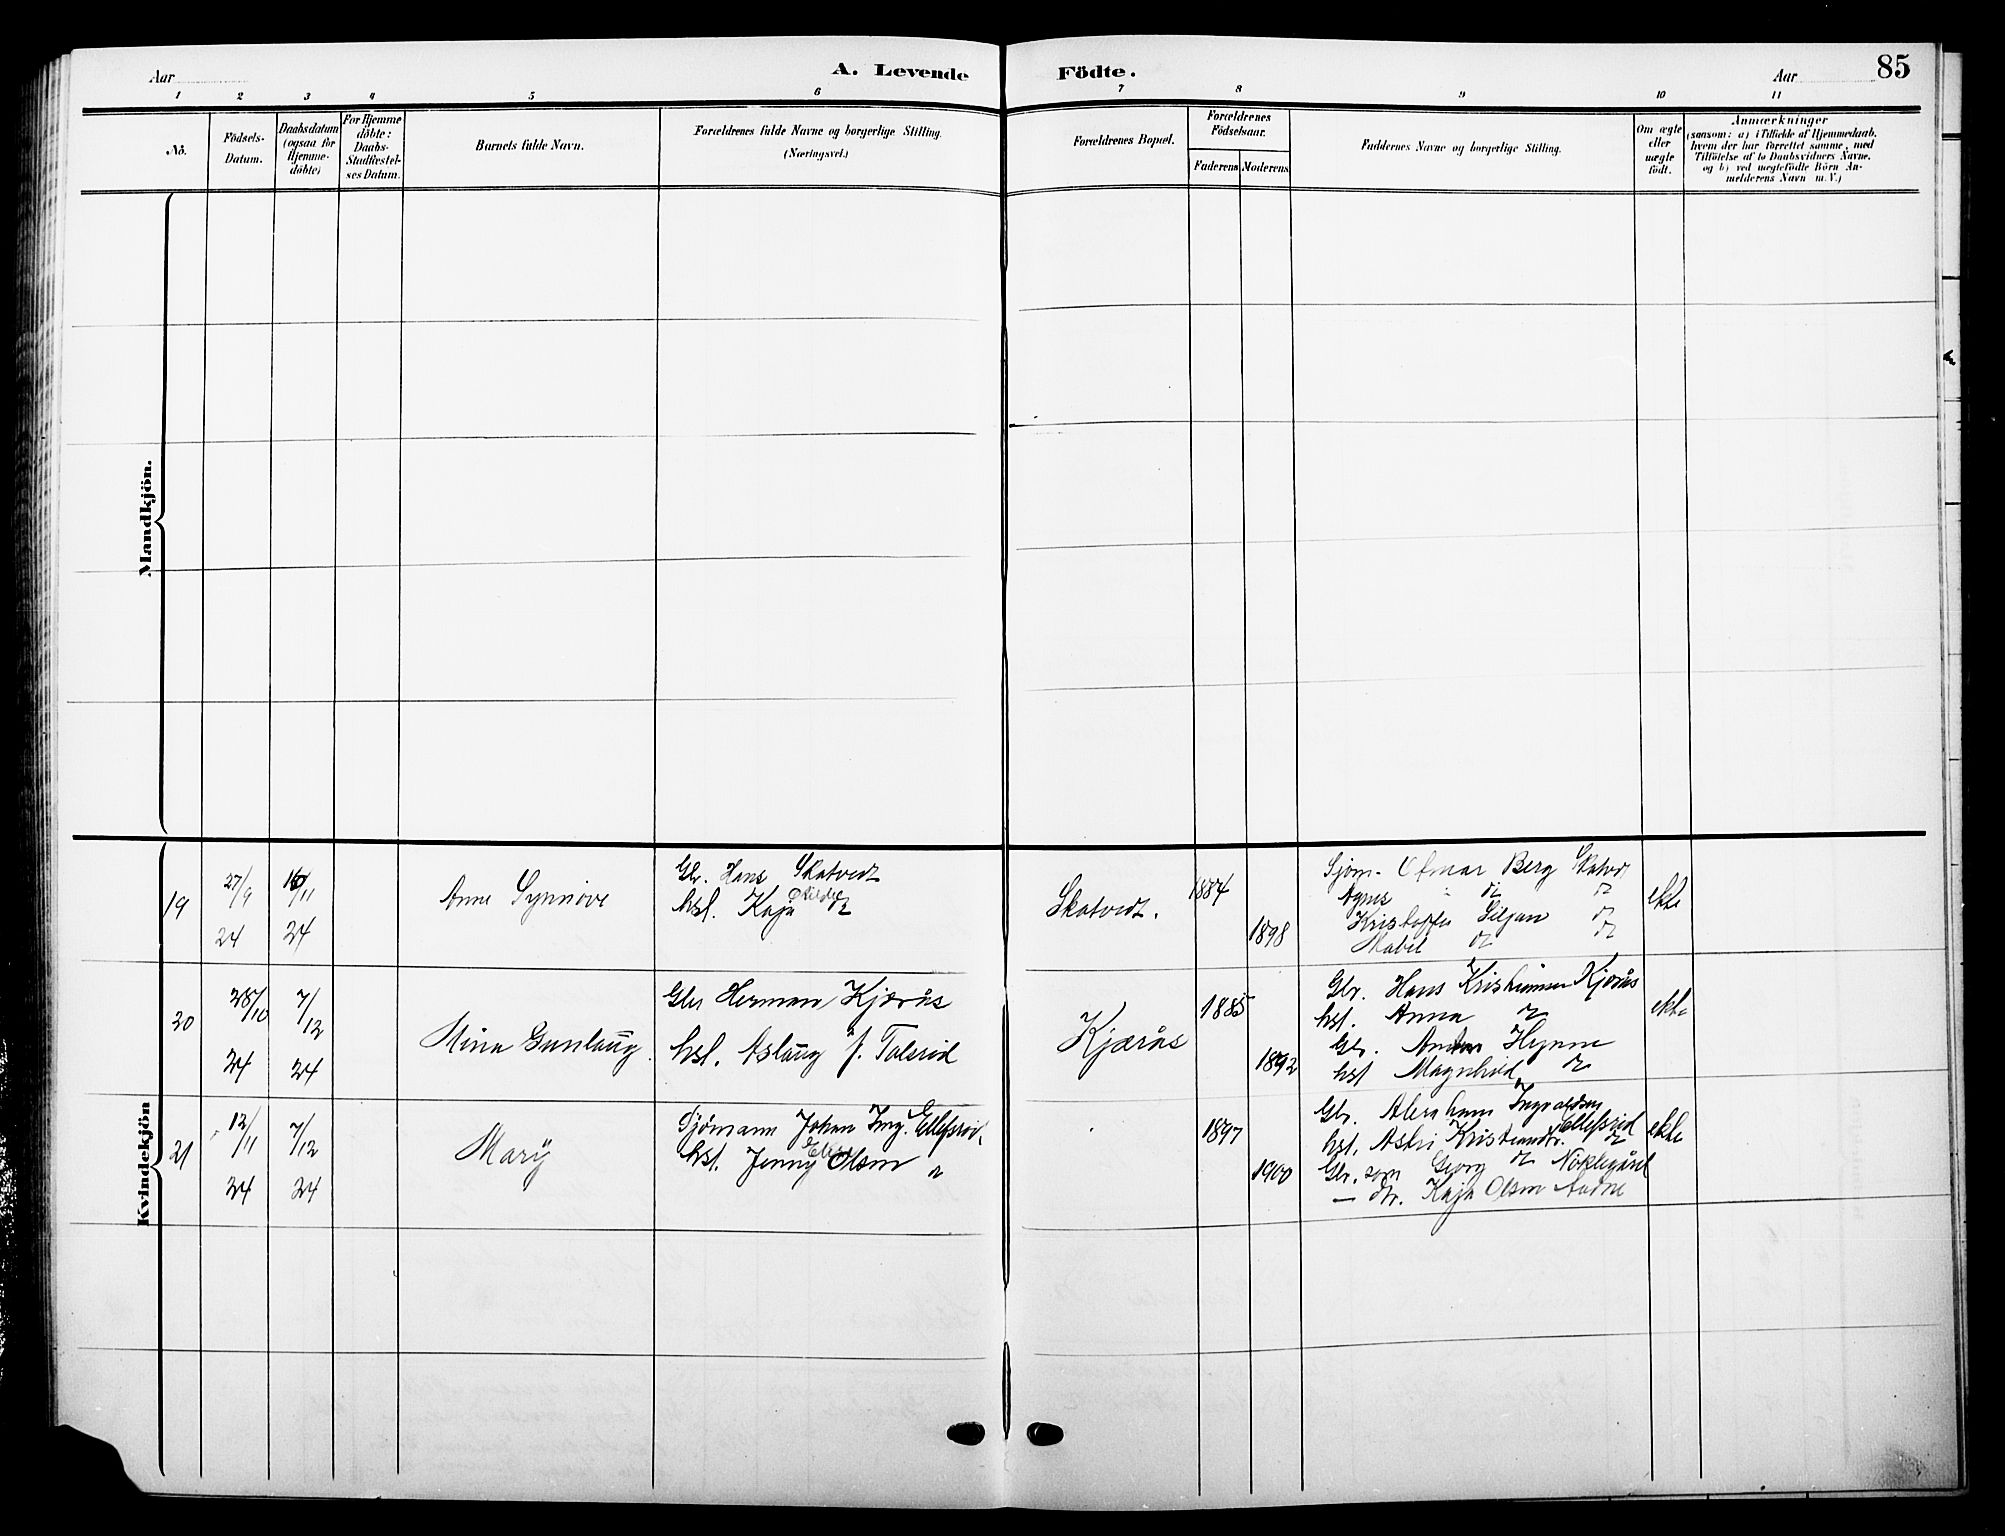 Aar A. Levende Födte. Aar 85
1 2 3 4 5 6 7 8 9 10 11
Nô. Födsels-Datum. Daabsdatum (ogsaa for Hjemme-döbte) For Hjemme döbte: Daabs-Stadfæstel-ses Datum. Barnets fulde Navn. Forældrenes fulde Navne og borgerlige Stilling. (Næringsvei.) Forældrenes Bopæl. Forældrenes Födselsaar. Faderens Moderens Faddernes Navne og borgerlige Stilling. Om ægte eller uægte födt. Anmærkninger (saasom: a) i Tilfælde af Hjemmedaab, hvem der har forrettet samme, med Tilföielse af to Daabsvidners Navne, og b) ved uægtefödte Börn An-melderens Navn m.V.)
Mandkjön.
Kvindekjön
19 27/9 24 16/11 24 Anne Synnöve
Gbr. Hans Skatvedt
hst. Kaja do
Skatvedt. 1884 1898
Sjöm. Otmar Berg Skatvedt
Agnes do do
Kristoffer Siljan do
Mabel do do
ekte
20 28/10 24 7/12 24 Mina Gunlaug.
Gbr Herman Kjærås
hst. Aslaug f. Tolsrød
Kjærås 1885 1892
Gbr. Hans Kristiansen Kjærås
hst. Anna do
Gbr. Anton Hynne
hst Magnhild do
ekte
21 12/11 24 7/12 24 Mary
Sjømann Johan Ing. Ellefsrød,
hst. Jenny Olsen "
1897 1900
Gbr. Abraham Ingvaldsen Ellefsrød
hst. Astri Kristiandtr. do
Gbr. søn Georg do Nøklegård
— dtr. Kaja Olsen Aadne
ekte